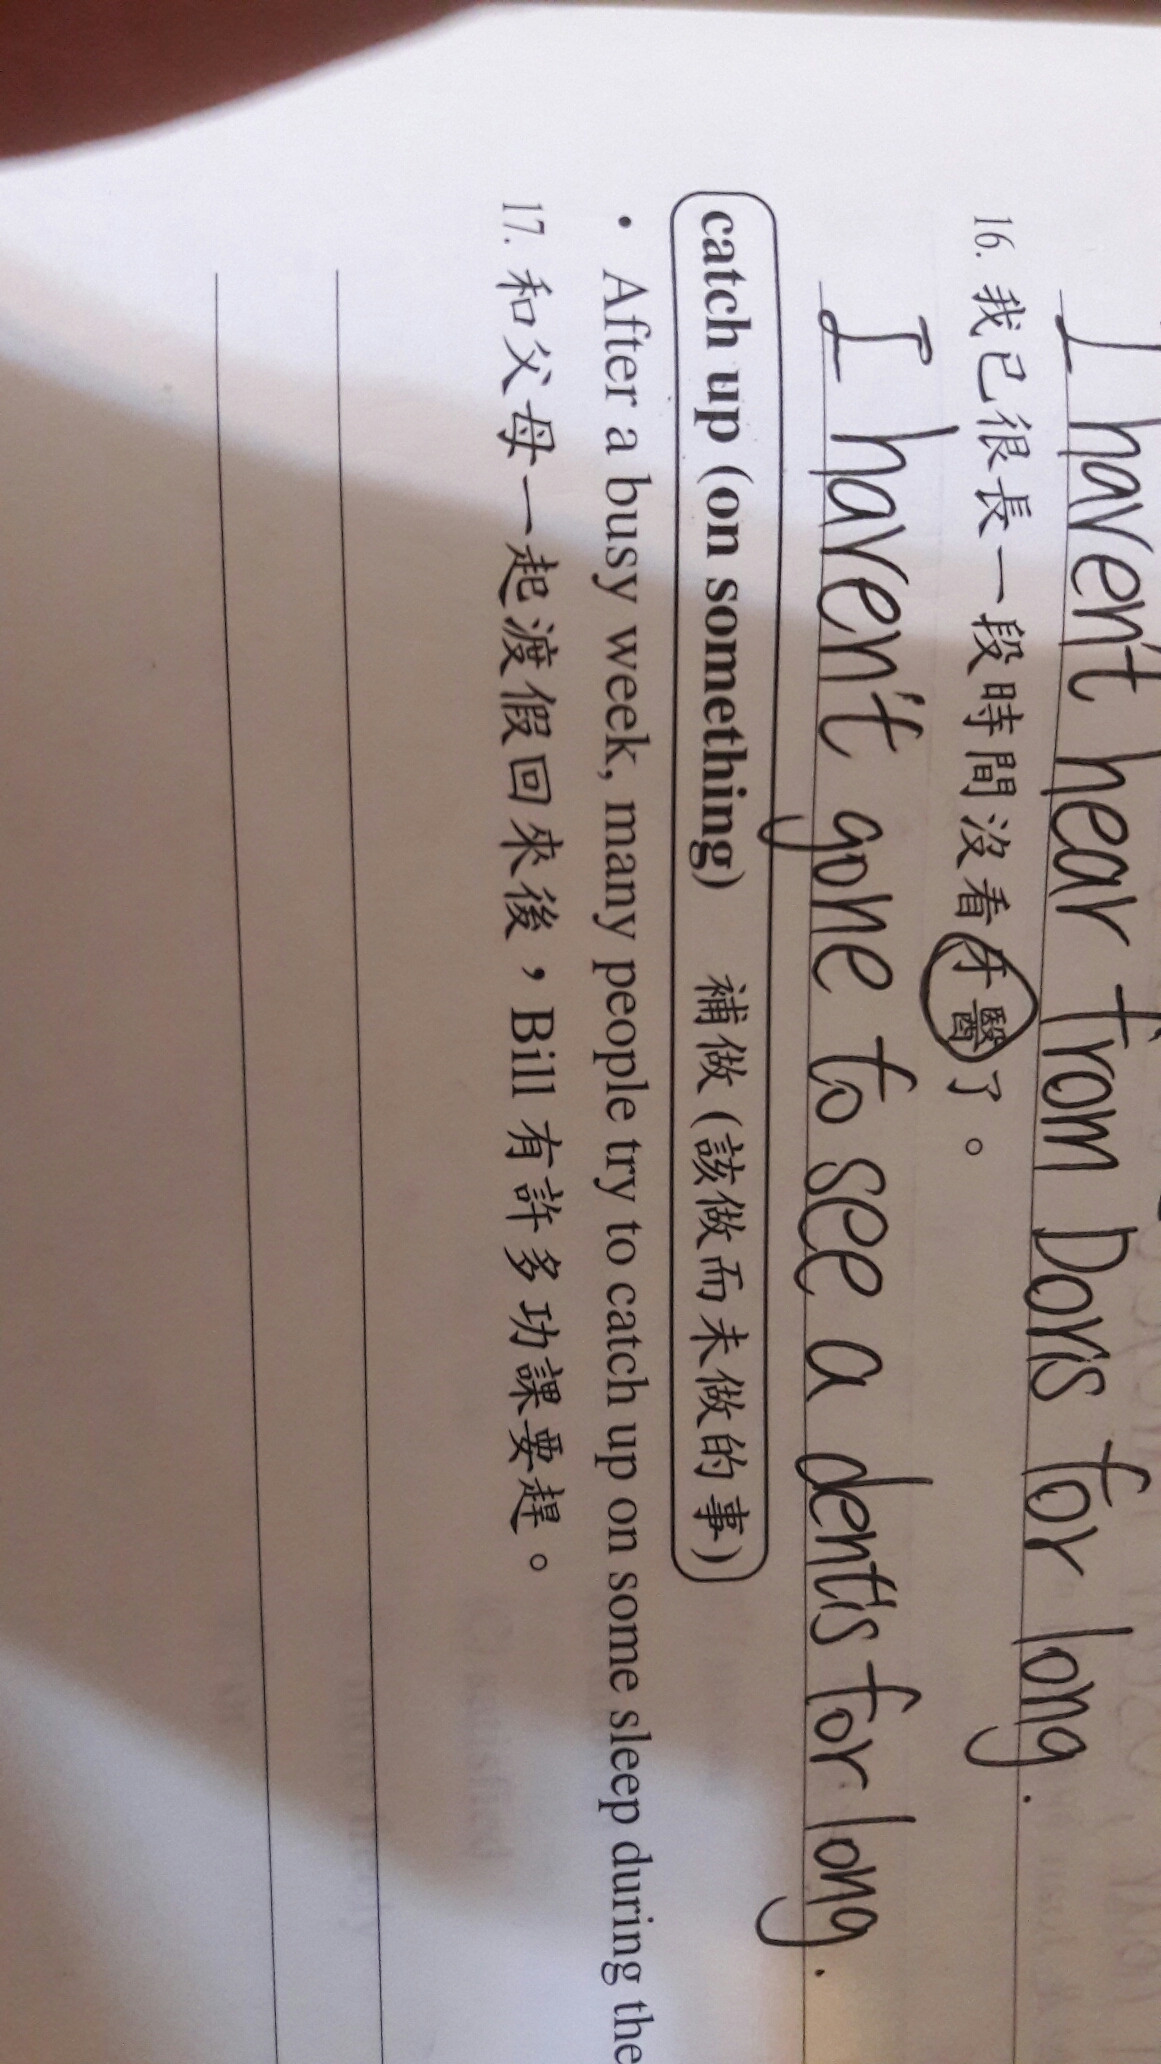 I haven't hear from Doris for long.
16. 我已很長一段時間沒看牙醫了。
I haven't gone to see a dentis for long.
catch up (on something) 補做 (該做而未做的事)
• After a busy week, many people try to catch up on some sleep during the
17. 和父母一起渡假回來後，Bill 有許多功課要趕。